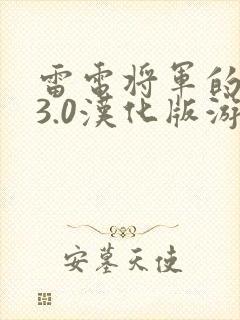 雷电将军的
3.0漢化版游
安墓天使